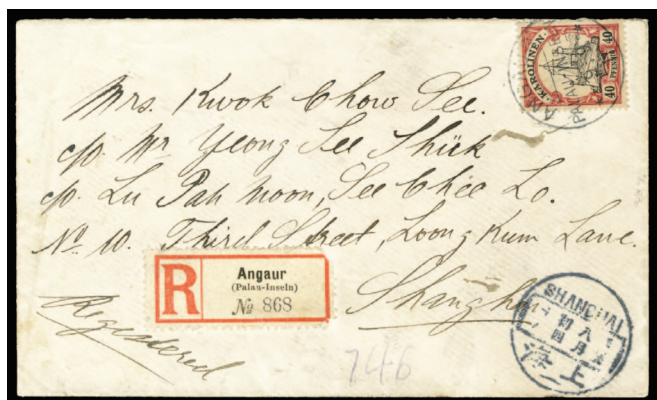 KAROLINEN
40 PFENNIG 40
Mrs. Kwok Chow See.
c/o. Mr Yeong See Shück
c/o. Lu Pah Moon, See Chee Lo.
No. 10. Third Street, Loong Kum Lane.
Shanghai
Registered
R
Angaur
(Palau-Inseln)
No 868
746
SHANGHAI
八月
初四
上海